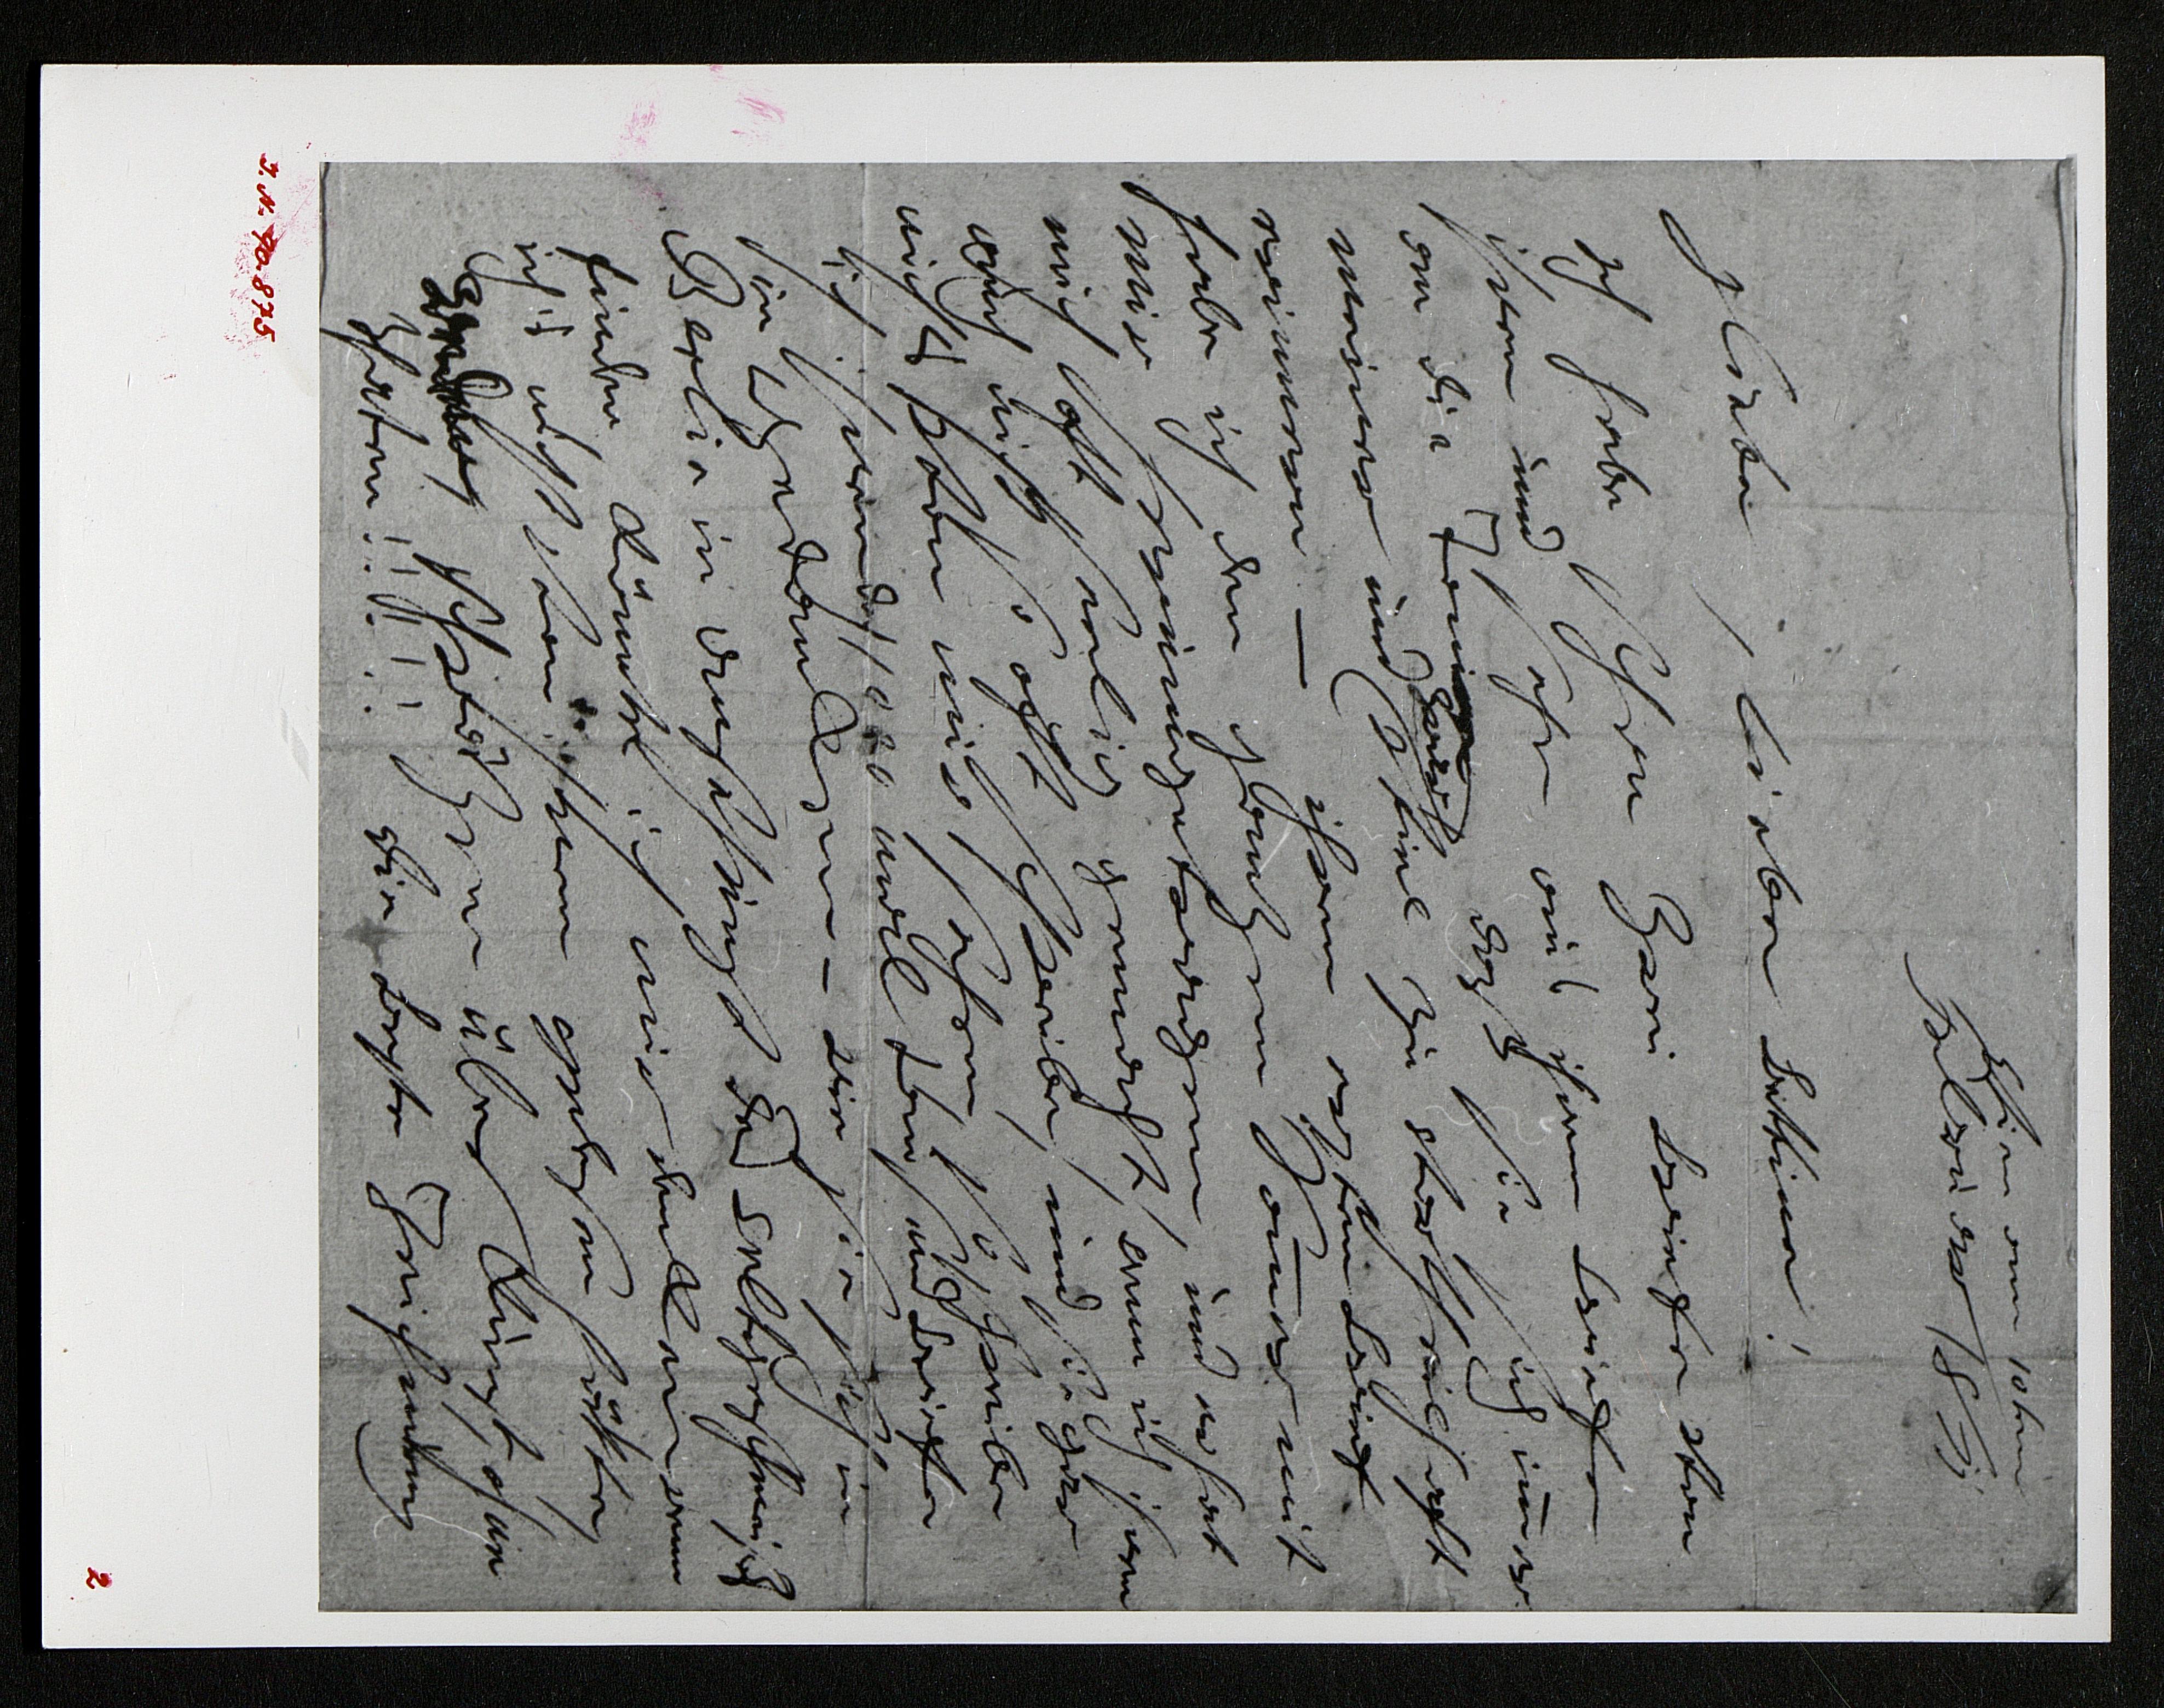 Vien am 10ten
Februar 1811
Geliebte, liebe Bettine!
Ich habe schon zwei Briefe von
ihnen und sehe aus ihrem Briefe
an die Tonie daß sie sich immer
meiner und zwar viel zu vortheilhaft
erinnern — ihren ersten Brief
habe ich den ganzen Sommer mit
mir herumgetragen, und er hat
mich oft seelig gemacht, wenn ich ihnen
auch nicht so oft schreibe, und sie gar
nichts von mir sehen, so schreibe
ich ihnen 1000 mal tausend Briefe
in Gedanken — wie sie sich in
Berlin in ansehung des Weltgeschmeiß
finden könnte ich mir denken, wenn
ich's nicht von ihnen gelesen hätte,
schwätzen über Kunst ohne
Thaten!!!!! die beste Zeichnung
J. N. 90875
2